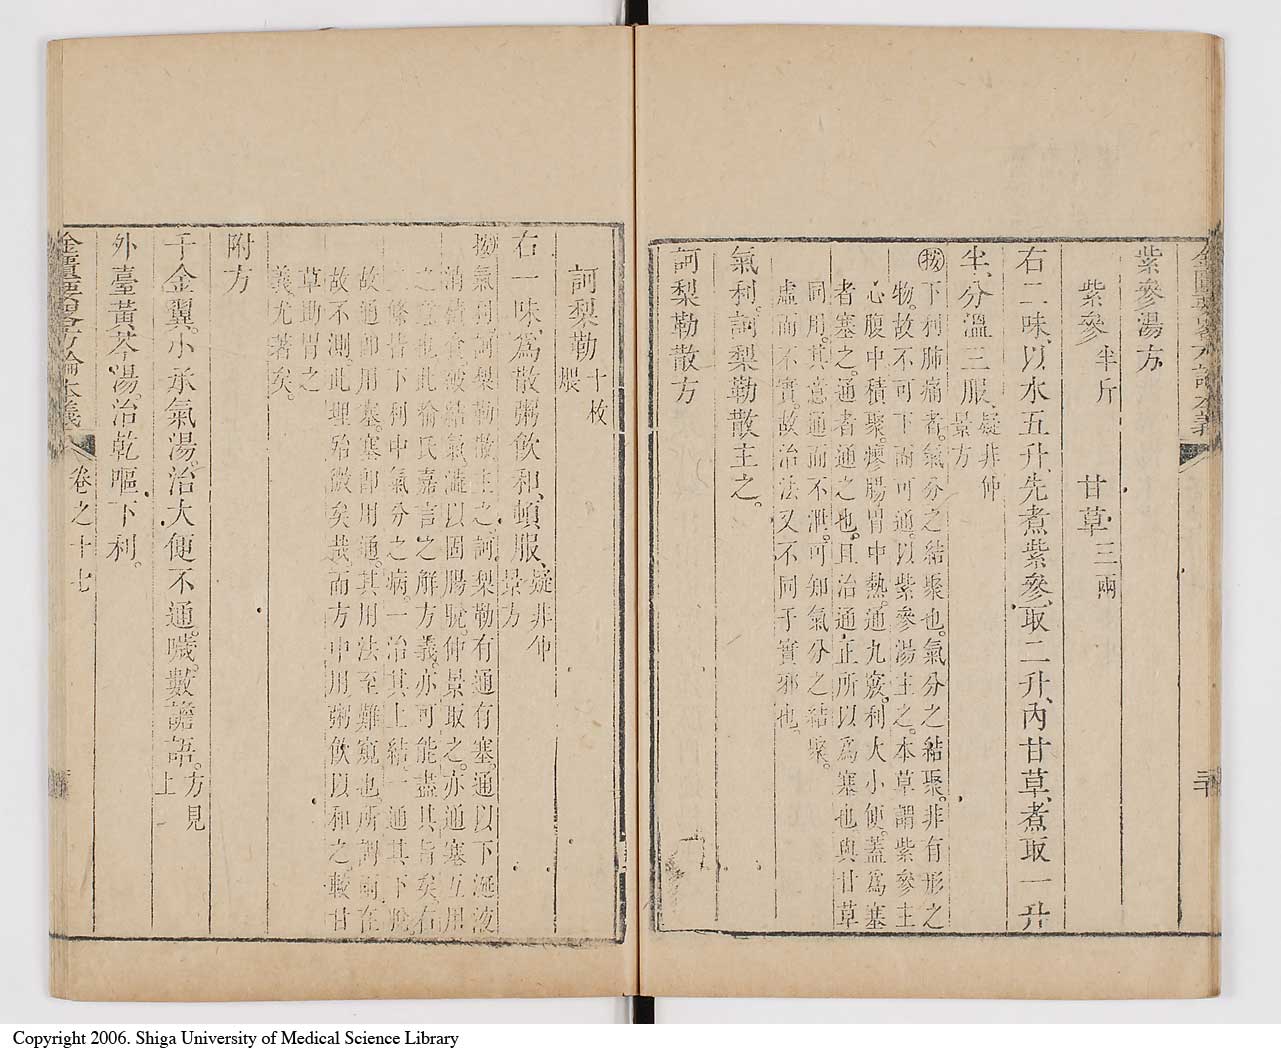 紫參湯方
紫參半斤　甘草三兩
右二味、以水五升、先煮紫參、取二升、內甘草、煮取一升
半、分溫三服、疑非仲景方
按下利肺痛者。氣分之結聚也。氣分之結聚。非有形之
物。故不可下而可通。以紫參湯主之。本草謂紫參主
心腹中積聚。療腸胃中熱。通九竅。利大小便。蓋爲塞
者塞之。通者通之也。且治通。正所以爲塞也。與甘草
同用。其意通而不泄。可知氣分之結聚。
虛而不實。故治法又不同于實邪也。
氣利。訶梨勒散主之。
訶梨勒散方
訶梨勒十枚煨
右一味、爲散、粥飲和、頓服、疑非仲景方
按氣利。訶梨勒散主之。訶梨勒有通有塞。通以下涎液
消宿食破結氣。澁以固腸脫。仲景取之。亦通塞互用
之意也。此楡氏嘉言之解方義。亦可能盡其旨矣。右
二條皆下利中氣分之病。一治其上結。一通其下脫
故通卽用塞。塞卽用通。其用法至難窺也。所謂而在
故不測。此理殆微矣哉。而方中用粥飲以和之。較甘
草助胃之
義尤著矣。
附方
千金翼。小承氣湯。治大便不通。噦。數譫語。方見上
外臺黃芩湯。治乾嘔下利。
金匱要略方論本義
卷之十七
Copyright 2006. Shiga University of Medical Science Library